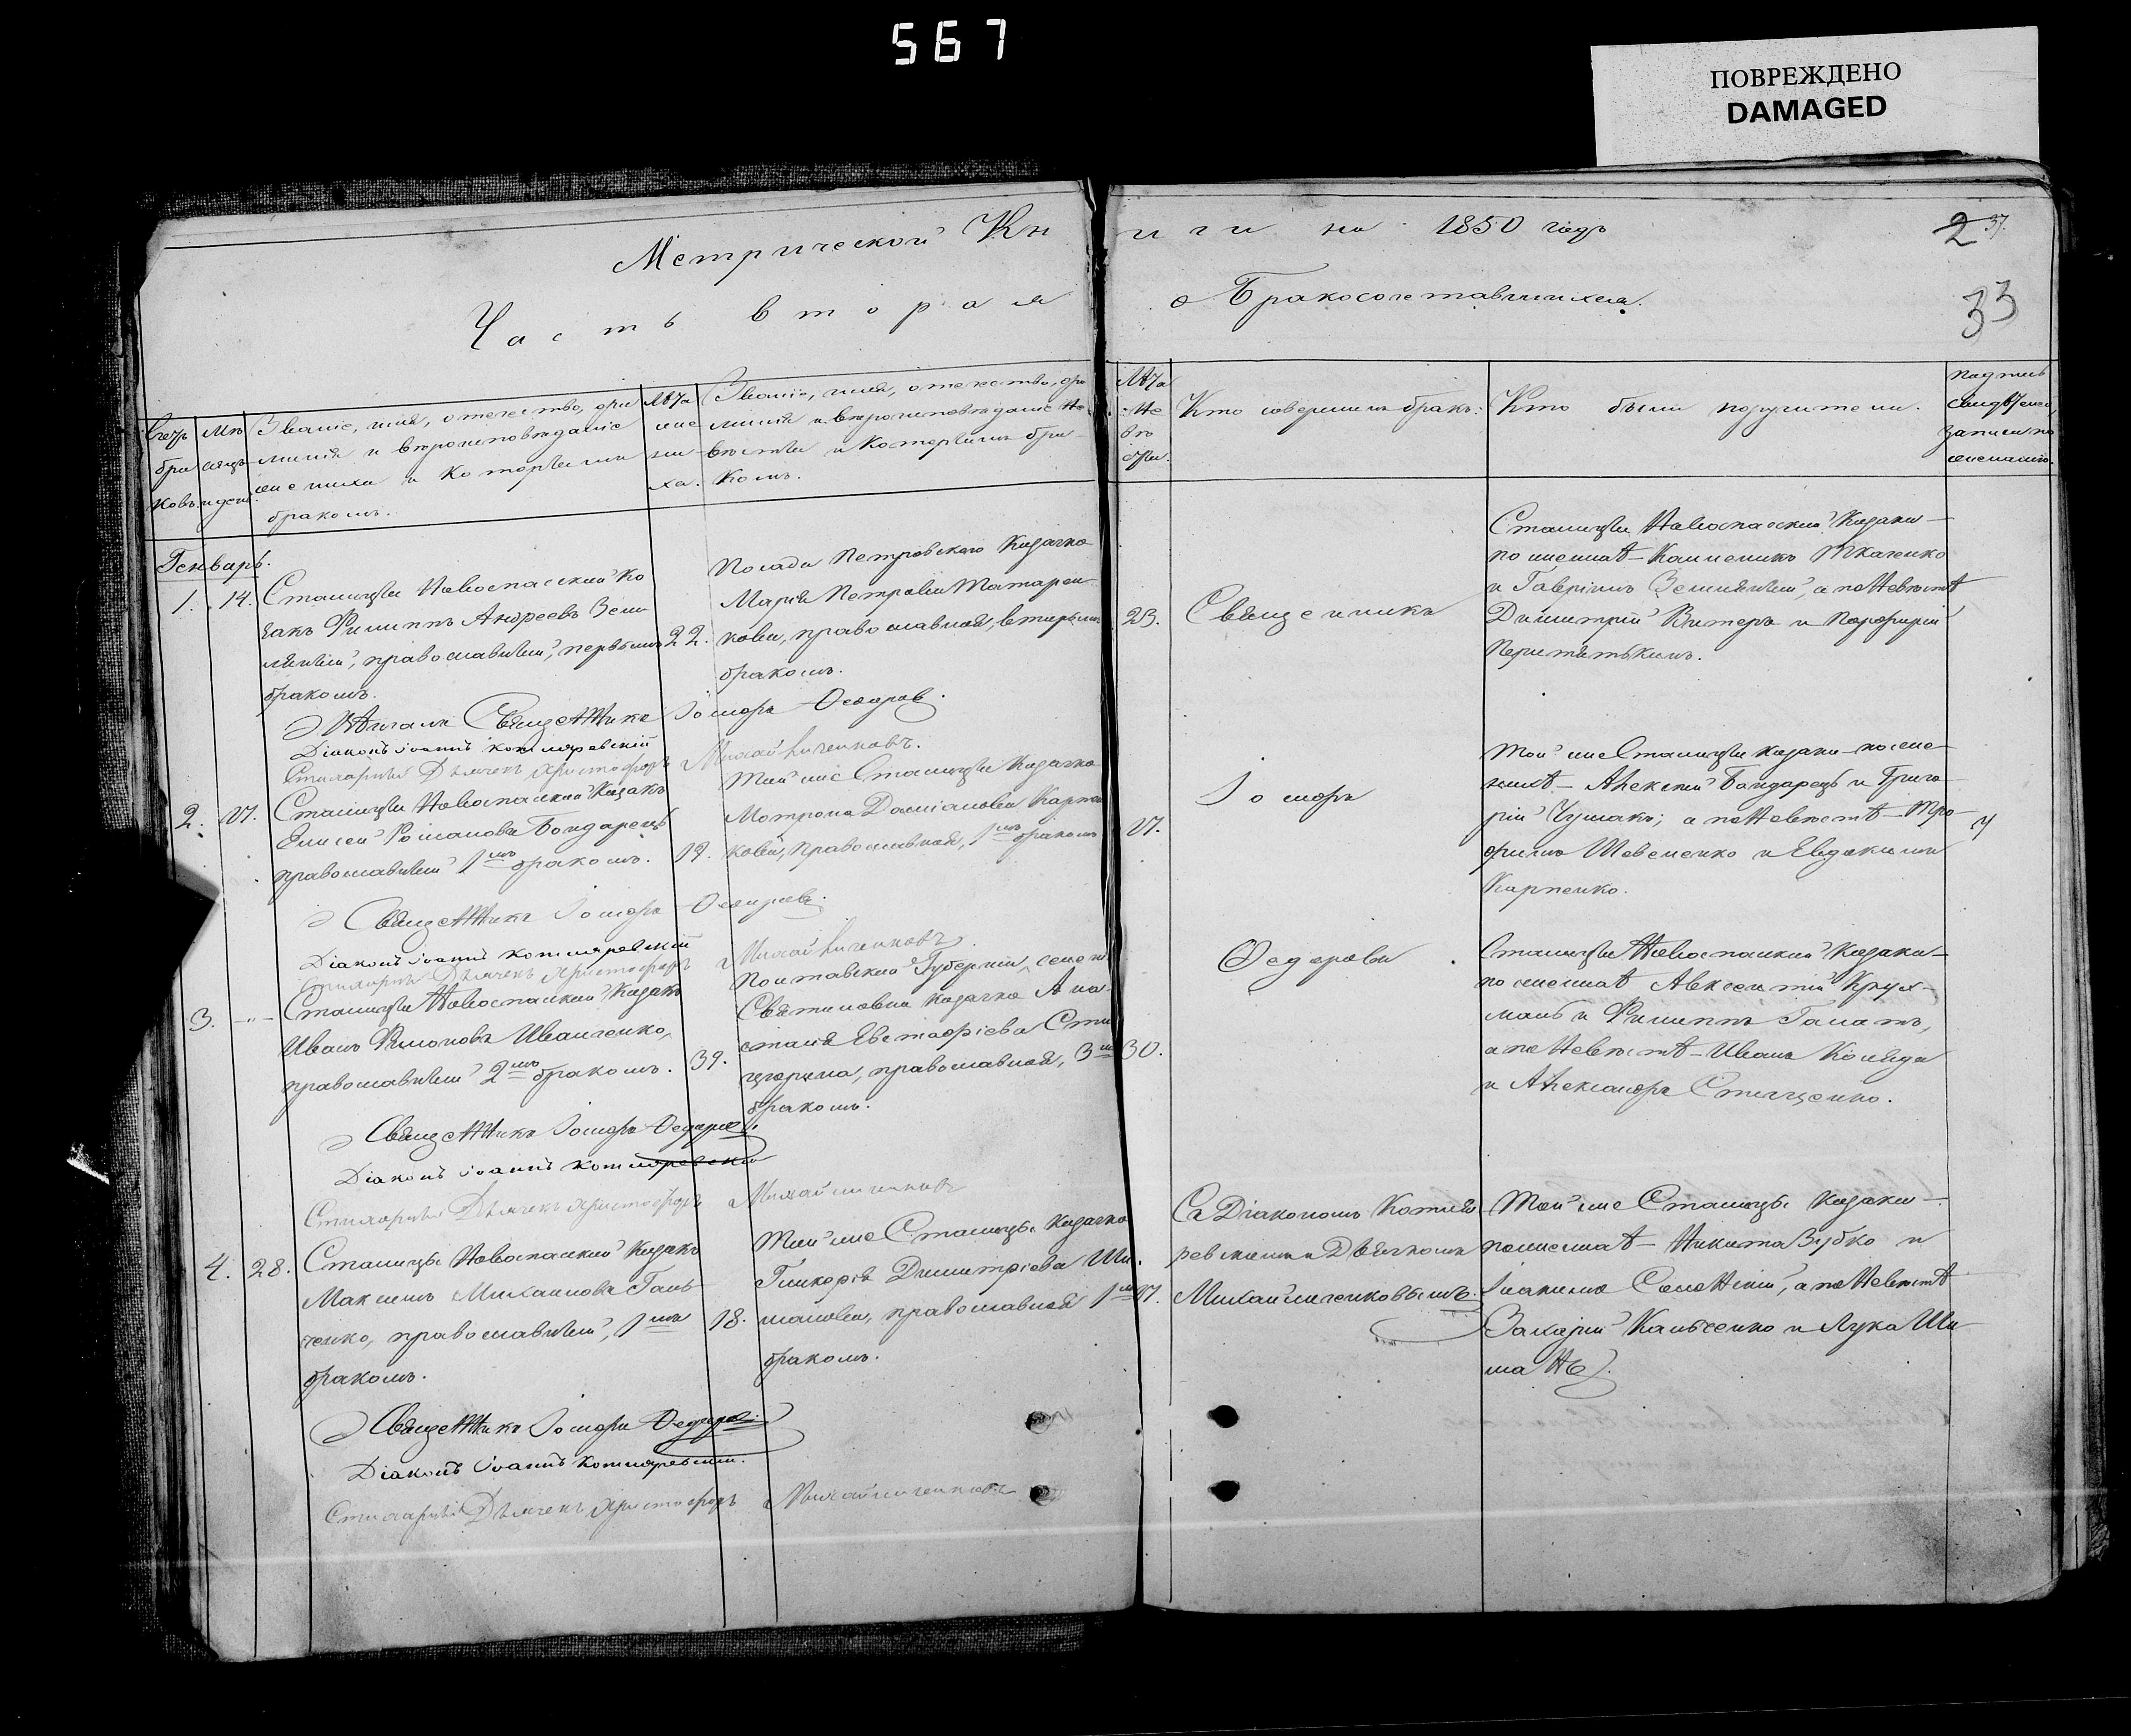 567
ПОВРЕЖДЕНО
DAMAGED
Метрической Книги на 1850 годъ
2 37.
Часть вторая о Бракосочетавшихся.
33
Счетъ браковъ.
Мѣсяцъ и день.
Званіе, имя, отечество, фамилія и вѣроисповѣданіе жениха и которымъ бракомъ.
Лѣта жениха.
Званіе, имя, отечество, фамилія и вѣроисповѣданіе невѣсты и которымъ бракомъ.
Лѣта невѣсты.
Кто совершилъ бракъ:
Кто были поручители.
Генварь.
1. 14.
Станицы Новоспаской Ко
закъ Филиппъ Андреевъ Зем
ляный, православный, первымъ
бракомъ.
22.
Посада Петровскаго Козачка
Марія Петрова Татарен
кова, православная, вторымъ
бракомъ.
23.
Священникъ
Станицы Новоспаской Козаки
по женихѣ Ткаченко
и Гавріилъ Земляный, а по Невѣстѣ
Димитрій и Порфирій
Священникъ Іосифъ Федоровъ.
Діаконъ Іоаннъ Котляревскій
Стихарный Дьячекъ Христофоръ Михайличенковъ.
2. 27.
Станицы Новоспаской Козакъ
Елисей Романовъ Бондарецъ
православный 1мъ бракомъ.
19.
Той же Станицы Козачка
Мотрона Даміанова Карпен
кова, православная, 1мъ бракомъ
Іосифъ
Той же Станицы козаки по жени
хѣ Алексей Бондарецъ и Григо
рій Чумакъ; а по Невѣстѣ Тро
фимъ Шевченко и Евдокимъ
Карпенко.
Священникъ Іосифъ Федоровъ.
Діаконъ Іоаннъ Котляревскій
Стихарный Дьячекъ Христофоръ Михайличенковъ
3. -"-
Станицы Новоспаской Козакъ
Иванъ Иванченко,
православный 2мъ бракомъ.
39.
Полтавской Губерніи,
козачка Ана
стасія Евстафіева
православная, 3мъ
бракомъ.
30.
Федоровъ
Станицы Новоспаской Козаки
по женихѣ Авксентій
и Филиппъ
а по Невѣстѣ Иванъ Коляда
и Александръ
Священникъ Іосифъ Федоровъ
Діаконъ Іоаннъ Котляревскій
Стихарный Дьячекъ Христофоръ Михайличенковъ
4. 28.
Станицы Новоспаской Козакъ
Максимъ Михаиловъ Галь
ченко, православный, 1мъ
бракомъ.
18.
Той же Станицы Козачка
Гликерія Димитріева Ши
манова, православная 1мъ
бракомъ.
17.
Съ Діакономъ Котля
ревскимъ и Дьячкомъ
Михайличенковымъ.
Той же Станицы Козаки
по женихѣ Никита Зубко и
а по Невѣстѣ
Захарій и Лука Ши
манъ.
Священникъ Іосифъ Федоровъ
Діаконъ Іоаннъ Котляревскій.
Стихарный Дьячекъ Христофоръ Михайличенковъ